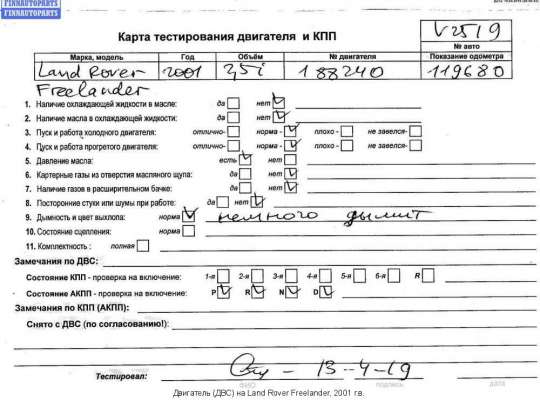 FINNAUTOPARTS
FINNAUTOPARTS
Карта тестирования двигателя и КПП
V2519
№ авто
Марка, модель Год Объём № двигателя Показание одометра
Land Rover 2001 2,5i 188240 119680
Freelander
1. Наличие охлаждающей жидкости в масле: да нет
2. Наличие масла в охлаждающей жидкости: да нет
3. Пуск и работа холодного двигателя: отлично- норма - плохо - не завелся-
4. Пуск и работа прогретого двигателя: отлично- норма - плохо - не завелся-
5. Давление масла: есть нет
6. Картерные газы из отверстия масляного щупа: да нет
7. Наличие газов в расширительном бачке: да нет
8. Посторонние стуки или шумы при работе: да нет
9. Дымность и цвет выхлопа: норма немного дымит
10. Состояние сцепления: норма
11. Комплектность : полная
Замечания по ДВС:
Состояние КПП - проверка на включение: 1-я 2-я 3-я 4-я 5-я 6-я R
Состояние АКПП - проверка на включение: P R N D
Замечания по КПП (АКПП):
Снято с ДВС (по согласованию!):
Тестировал: - 13-4-19
ФИО подпись дата
Двигатель (ДВС) на Land Rover Freelander, 2001 г.в.